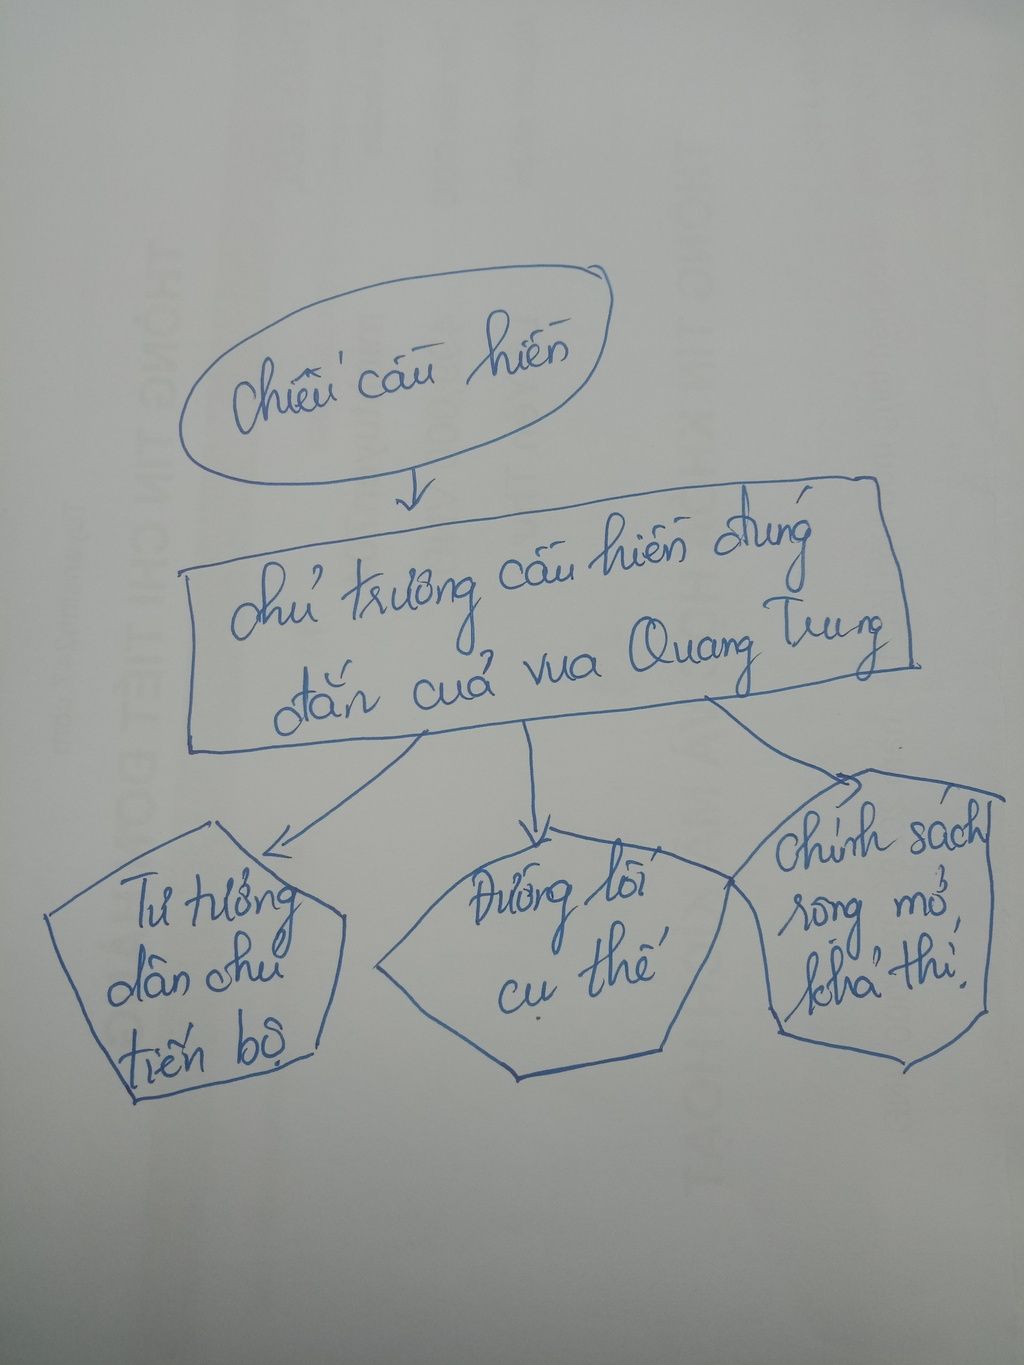 Chiếu cầu hiền
chủ trương cầu hiền đúng
đắn của vua Quang Trung
Tư tưởng
dân chủ
tiến bộ
Đường lối
cụ thể
Chính sách
rộng mở,
khả thi.